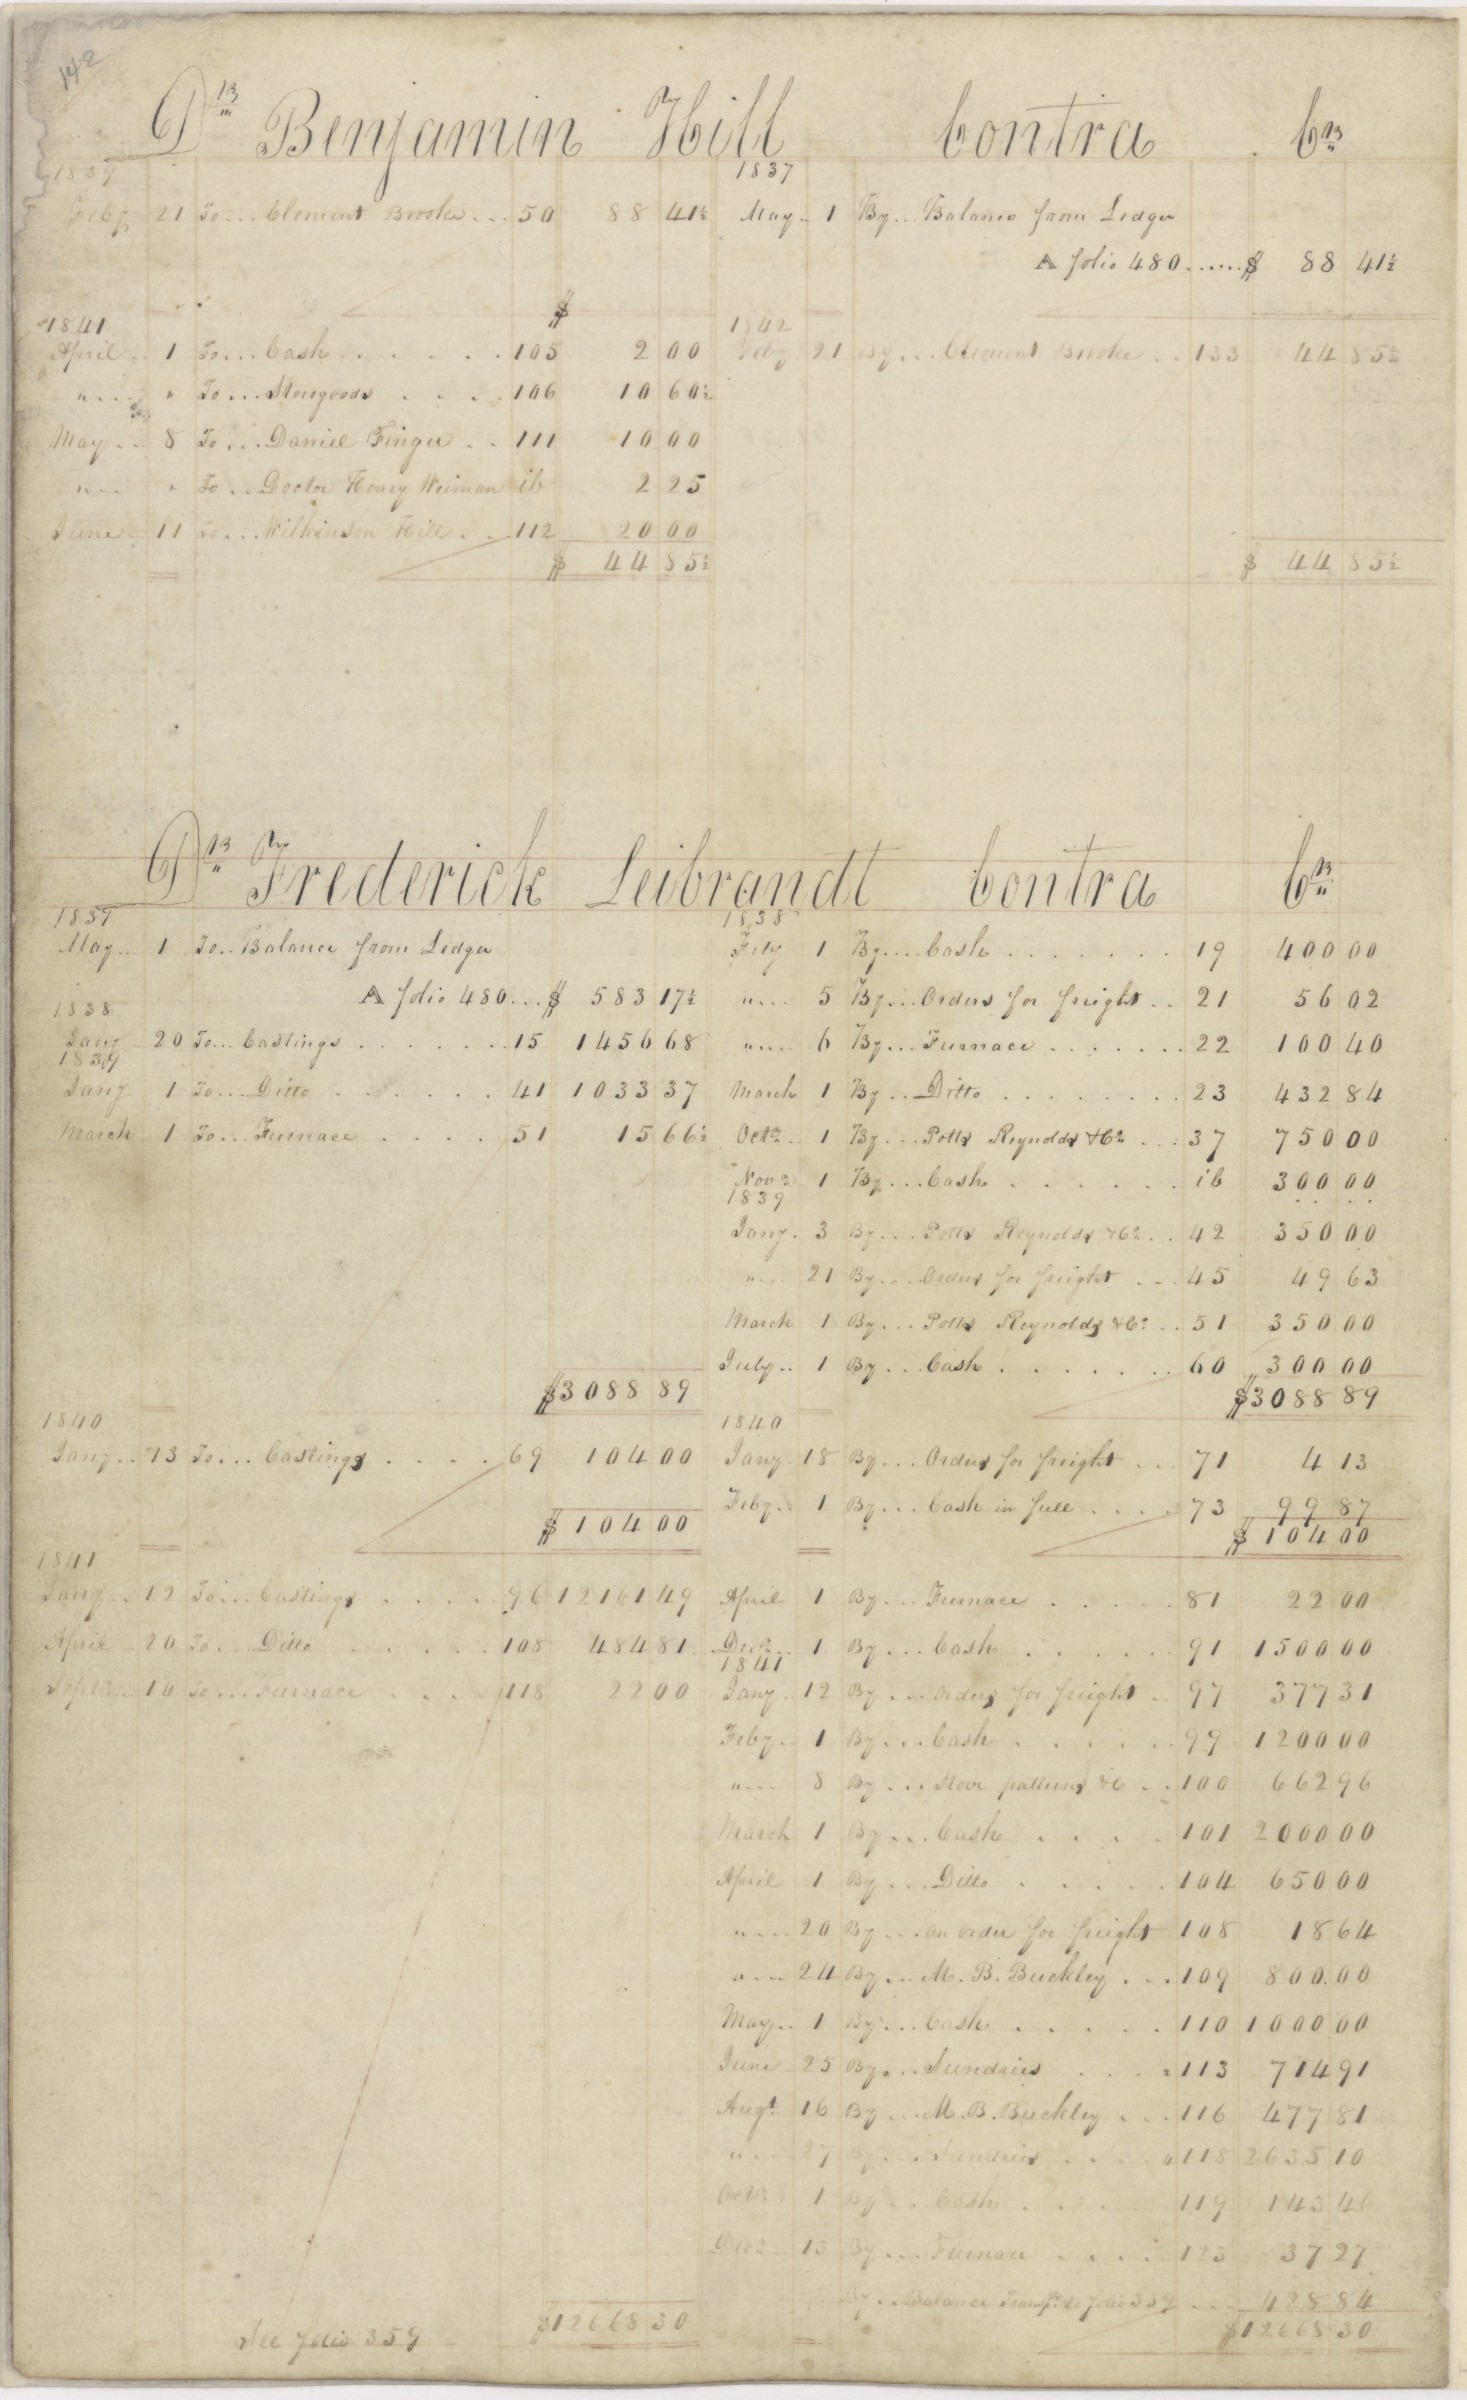 142
Dr Benjamin Hill Contra Cr
1839
Feby 21 To... Clement Brooke... 50 88 41½
1841
April.. 1 To... Cash...... 105 2 00
".... " To... Storegoods.... 106 10 60½
May... 8 To... Daniel Finger... 111 10 00
".... " To... Doctor Henry Weiman ib 2 25
June.. 11 To... Wilkinson Hill... 112 20 00
$ 44 85½
1837
May.. 1 By... Balance from Ledger
A folio 480......$ 88 41½
1842
Feby 21 By... Clement Brooke... 133 44 85½
$ 44 85½
Dr Frederick Leibrandt Contra Cr
1837
May.. 1 To.. Balance from Ledger
A folio 480...$ 583 17½
1838
Jany 20 To... Castings....... 15 1456 68
1839
Jany 1 To... Ditto....... 41 1033 37
March 1 To... Furnace..... 51 15 66½
$3088 89
1840
Jany.. 13 To... Castings..... 69 104 00
$ 104 00
1841
Jany.. 12 To... Castings..... 96 12161 49
April.. 20 To... Ditto...... 108 484 81
Septr.. 10 To... Furnace.... 118 22 00
See folio 359
$12668 30
1838
Feby 1 By.... Cash....... 19 400 00
".... 5 By... Orders for freight.. 21 56 02
".... 6 By... Furnace....... 22 100 40
March 1 By... Ditto........ 23 432 84
Octr.. 1 By... Potts Reynolds & Co... 37 750 00
Novr 1 By... Cash...... ib 300 00
1839
Jany. 3 By... Potts Reynolds & Co.. 42 350 00
".... 21 By.... Orders for freight... 45 49 63
March 1 By... Potts Reynolds & Co.. 51 350 00
July.. 1 By... Cash....... 60 300 00
$3088 89
1840
Jany. 18 By... Orders for freight... 71 4 13
Feby.. 1 By... Cash in full.... 73 99 87
$ 104 00
April 1 By... Furnace..... 81 22 00
Decr.. 1 By... Cash...... 91 1500 00
1841
Jany. 12 By... Orders for freight.. 97 377 31
Feby.. 1 By... Cash...... 99 1200 00
".... 8 By... Stove patterns &c.. 100 662 96
March 1 By... Cash.... 101 2000 00
April 1 By... Ditto..... 104 650 00
".... 20 By... an order for freight 108 18 64
".... 24 By... M. B. Buckley... 109 800 00
May.. 1 By... Cash..... 110 1000 00
June 25 By... Sundries.... 113 714 91
Augt 16 By... M. B. Buckley... 116 477 81
".... 27 By... Sundries.... 118 2635 10
Octr 1 By... Cash.... 119 143 46
Decr 13 By... Furnace..... 123 37 27
By... Balance Transfd. to folio 359... 428 84
$12668 30